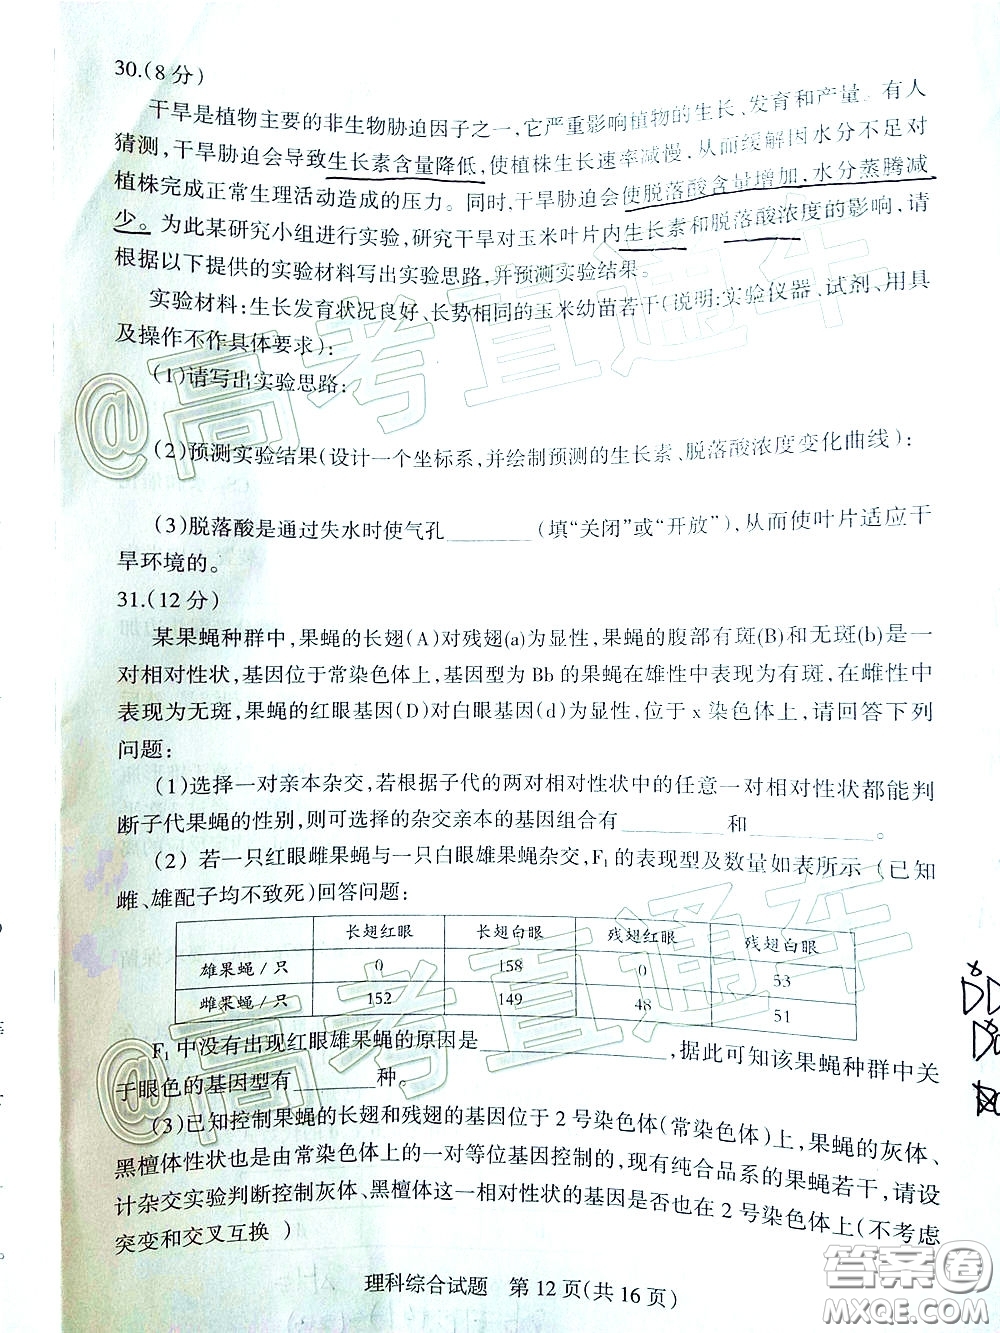 30.(8分)
干旱是植物主要的非生物胁迫因子之一,它严重影响植物的生长、发育和产量。有人
猜测,干旱胁迫会导致生长素含量降低,使植株生长速率减慢,从而缓解因水分不足对
植株完成正常生理活动造成的压力。同时,干旱胁迫会使脱落酸含量增加,水分蒸腾减
少。为此某研究小组进行实验,研究干旱对玉米叶片内生长素和脱落酸浓度的影响,请
根据以下提供的实验材料写出实验思路,并预测实验结果。
实验材料:生长发育状况良好、长势相同的玉米幼苗若干(说明:实验仪器、试剂、用具
及操作不作具体要求):
(1)请写出实验思路:
(2)预测实验结果(设计一个坐标系,并绘制预测的生长素、脱落酸浓度变化曲线):
(3)脱落酸是通过失水时使气孔________(填“关闭”或“开放”),从而使叶片适应干
旱环境的。
31.(12分)
某果蝇种群中,果蝇的长翅(A)对残翅(a)为显性,果蝇的腹部有斑(B)和无斑(b)是一
对相对性状,基因位于常染色体上,基因型为Bb的果蝇在雄性中表现为有斑,在雌性中
表现为无斑,果蝇的红眼基因(D)对白眼基因(d)为显性,位于x染色体上,请回答下列
问题:
(1)选择一对亲本杂交,若根据子代的两对相对性状中的任意一对相对性状都能判
断子代果蝇的性别,则可选择的杂交亲本的基因组合有__________和__________。
(2)若一只红眼雌果蝇与一只白眼雄果蝇杂交,F₁的表现型及数量如表所示(已知
雌、雄配子均不致死)回答问题:
长翅红眼 长翅白眼 残翅红眼 残翅白眼
雄果蝇/只 0 158 0 53
雌果蝇/只 152 149 48 51
F₁中没有出现红眼雄果蝇的原因是______________,据此可知该果蝇种群中关
于眼色的基因型有______种。
(3)已知控制果蝇的长翅和残翅的基因位于2号染色体(常染色体)上,果蝇的灰体、
黑檀体性状也是由常染色体上的一对等位基因控制的,现有纯合品系的果蝇若干,请设
计杂交实验判断控制灰体、黑檀体这一相对性状的基因是否也在2号染色体上(不考虑
突变和交叉互换)
理科综合试题 第12页(共16页)
@高考直通车
@高考直通车
答案圈
MXQE.COM